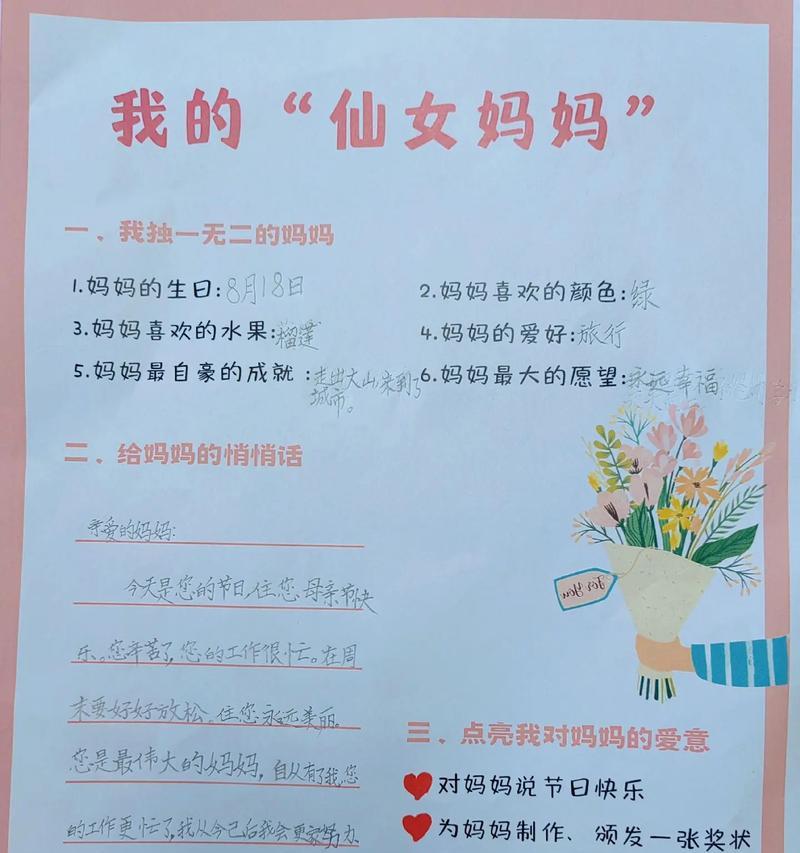 我的“仙女妈妈”
一、我独一无二的妈妈
1.妈妈的生日:8月18日
2.妈妈喜欢的颜色:绿
3.妈妈喜欢的水果:榴莲
4.妈妈的爱好:旅行
5.妈妈最自豪的成就：走出大山,来到了城市。
6.妈妈最大的愿望:永远幸福
二、给妈妈的悄悄话
亲爱的妈妈:
今天是您的节日,住您母亲节快
乐。您辛苦了,您的工作很忙。在周
末要好好放松。住您永远美丽。
您是最伟大的妈妈,自从有了我,您
的工作更忙了,我从今已后我会更家努力
For You
三、点亮我对妈妈的爱意
对妈妈说节日快乐
为妈妈制作、颁发一张奖状